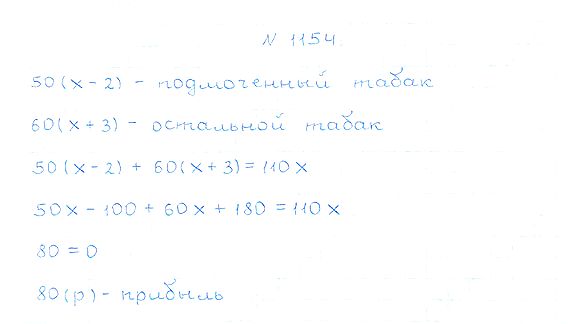 N 1154.
50(x-2) - подмоченный табак
60(x+3) - остальной табак
50(x-2) + 60(x+3) = 110x
50x - 100 + 60x + 180 = 110x
80 = 0
80(р) - прибыль